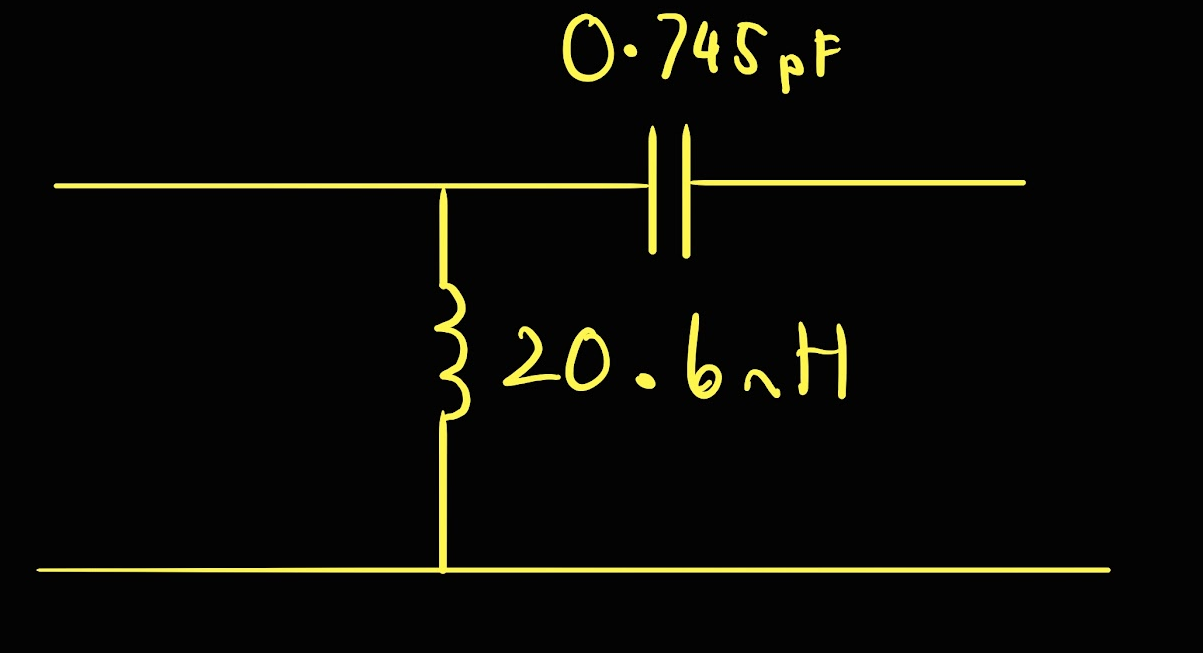 0.745pF
20.6nH